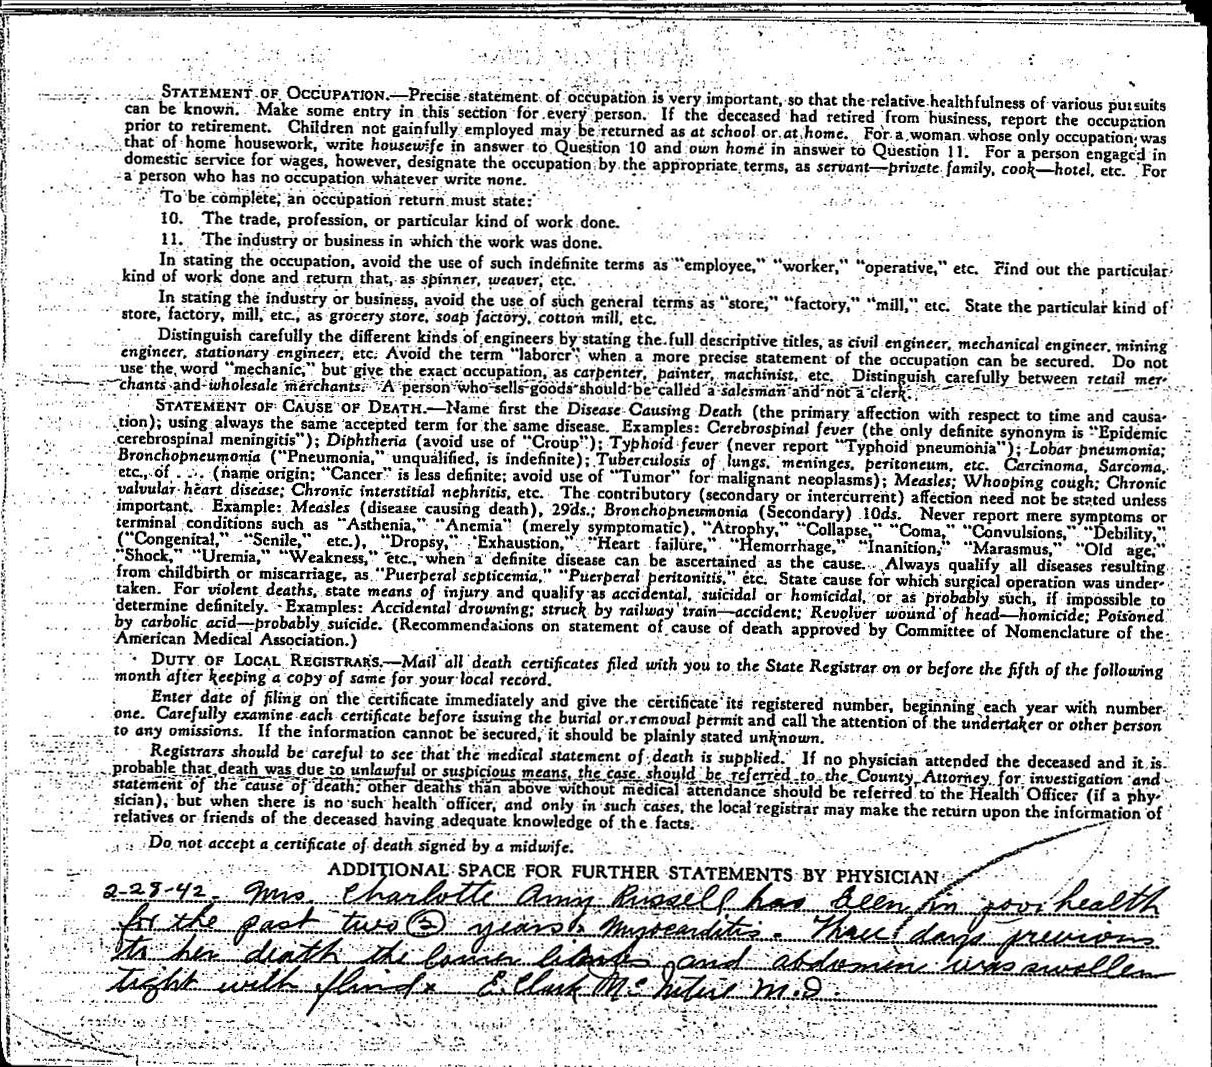 STATEMENT OF OCCUPATION.—Precise statement of occupation is very important, so that the relative healthfulness of various pursuits
can be known. Make some entry in this section for every person. If the deceased had retired from business, report the occupation
prior to retirement. Children not gainfully employed may be returned as at school or at home. For a woman whose only occupation was
that of home housework, write housewife in answer to Question 10 and own home in answer to Question 11. For a person engaged in
domestic service for wages, however, designate the occupation by the appropriate terms, as servant—private family, cook—hotel, etc. For
a person who has no occupation whatever write none.
To be complete, an occupation return must state:
10. The trade, profession, or particular kind of work done.
11. The industry or business in which the work was done.
In stating the occupation, avoid the use of such indefinite terms as "employee," "worker," "operative," etc. Find out the particular
kind of work done and return that, as spinner, weaver, etc.
In stating the industry or business, avoid the use of such general terms as "store," "factory," "mill," etc. State the particular kind of
store, factory, mill, etc., as grocery store, soap factory, cotton mill, etc.
Distinguish carefully the different kinds of engineers by stating the full descriptive titles, as civil engineer, mechanical engineer, mining
engineer, stationary engineer, etc. Avoid the term "laborer" when a more precise statement of the occupation can be secured. Do not
use the word "mechanic," but give the exact occupation, as carpenter, painter, machinist, etc. Distinguish carefully between retail mer-
chants and wholesale merchants. A person who sells goods should be called a salesman and not a clerk.
STATEMENT OF CAUSE OF DEATH.—Name first the Disease Causing Death (the primary affection with respect to time and causa-
tion); using always the same accepted term for the same disease. Examples: Cerebrospinal fever (the only definite synonym is "Epidemic
cerebrospinal meningitis"); Diphtheria (avoid use of "Croup"); Typhoid fever (never report "Typhoid pneumonia"); Lobar pneumonia;
Bronchopneumonia ("Pneumonia," unqualified, is indefinite); Tuberculosis of lungs, meninges, peritoneum, etc. Carcinoma, Sarcoma,
etc., of . . . (name origin; "Cancer" is less definite; avoid use of "Tumor" for malignant neoplasms); Measles; Whooping cough; Chronic
valvular heart disease; Chronic interstitial nephritis, etc. The contributory (secondary or intercurrent) affection need not be stated unless
important. Example: Measles (disease causing death), 29ds.; Bronchopneumonia (Secondary) 10ds. Never report mere symptoms or
terminal conditions such as "Asthenia," "Anemia" (merely symptomatic), "Atrophy," "Collapse," "Coma," "Convulsions," "Debility,"
("Congenital," "Senile," etc.), "Dropsy," "Exhaustion," "Heart failure," "Hemorrhage," "Inanition," "Marasmus," "Old age,"
"Shock," "Uremia," "Weakness," etc., when a definite disease can be ascertained as the cause. Always qualify all diseases resulting
from childbirth or miscarriage, as "Puerperal septicemia," "Puerperal peritonitis," etc. State cause for which surgical operation was under-
taken. For violent deaths, state means of injury and qualify as accidental, suicidal or homicidal, or as probably such, if impossible to
determine definitely. Examples: Accidental drowning; struck by railway train—accident; Revolver wound of head—homicide; Poisoned
by carbolic acid—probably suicide. (Recommendations on statement of cause of death approved by Committee of Nomenclature of the
American Medical Association.)
DUTY OF LOCAL REGISTRARS.—Mail all death certificates filed with you to the State Registrar on or before the fifth of the following
month after keeping a copy of same for your local record.
Enter date of filing on the certificate immediately and give the certificate its registered number, beginning each year with number
one. Carefully examine each certificate before issuing the burial or removal permit and call the attention of the undertaker or other person
to any omissions. If the information cannot be secured, it should be plainly stated unknown.
Registrars should be careful to see that the medical statement of death is supplied. If no physician attended the deceased and it is
probable that death was due to unlawful or suspicious means, the case should be referred to the County Attorney for investigation and
statement of the cause of death; other deaths than above without medical attendance should be referred to the Health Officer (if a phy-
sician), but when there is no such health officer, and only in such cases, the local registrar may make the return upon the information of
relatives or friends of the deceased having adequate knowledge of the facts.
Do not accept a certificate of death signed by a midwife.
ADDITIONAL SPACE FOR FURTHER STATEMENTS BY PHYSICIAN
2-28-42. Mrs. Charlotte Amy Russell has been in poor health
for the past two (2) years. Myocarditis. Three days previous
to her death the lower and abdomen was swollen
tight with fluid. E. Clark McIntire M.D.